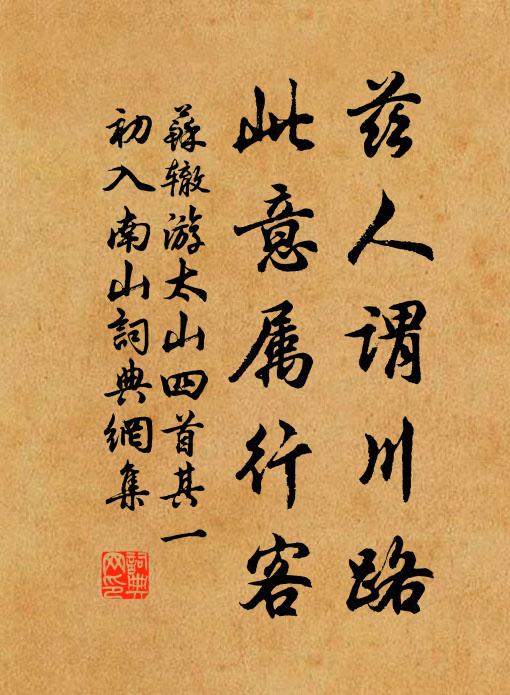 兹人谓川路
此意属行客
蘇辙游太山四首其一
初入南山詞典網集
詞典
网印